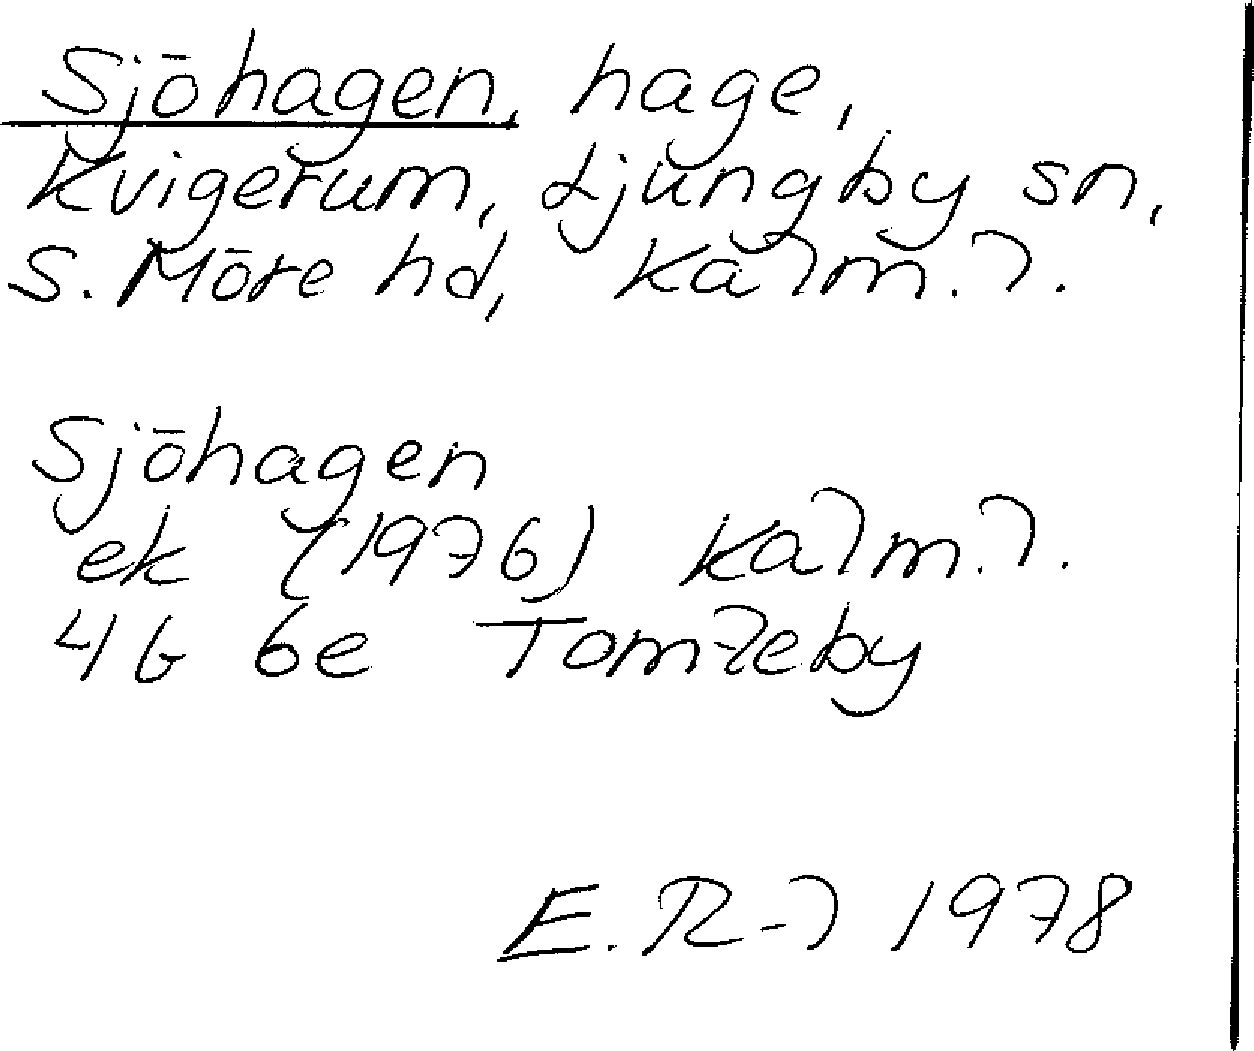 Sjöhagen, hage,
Kvigerum, Ljungby sn,
S. Möre hd, Kalm. l.
Sjöhagen
ek (1976) Kalm. l.
4G 6e Tomteby
E. R-l 1978